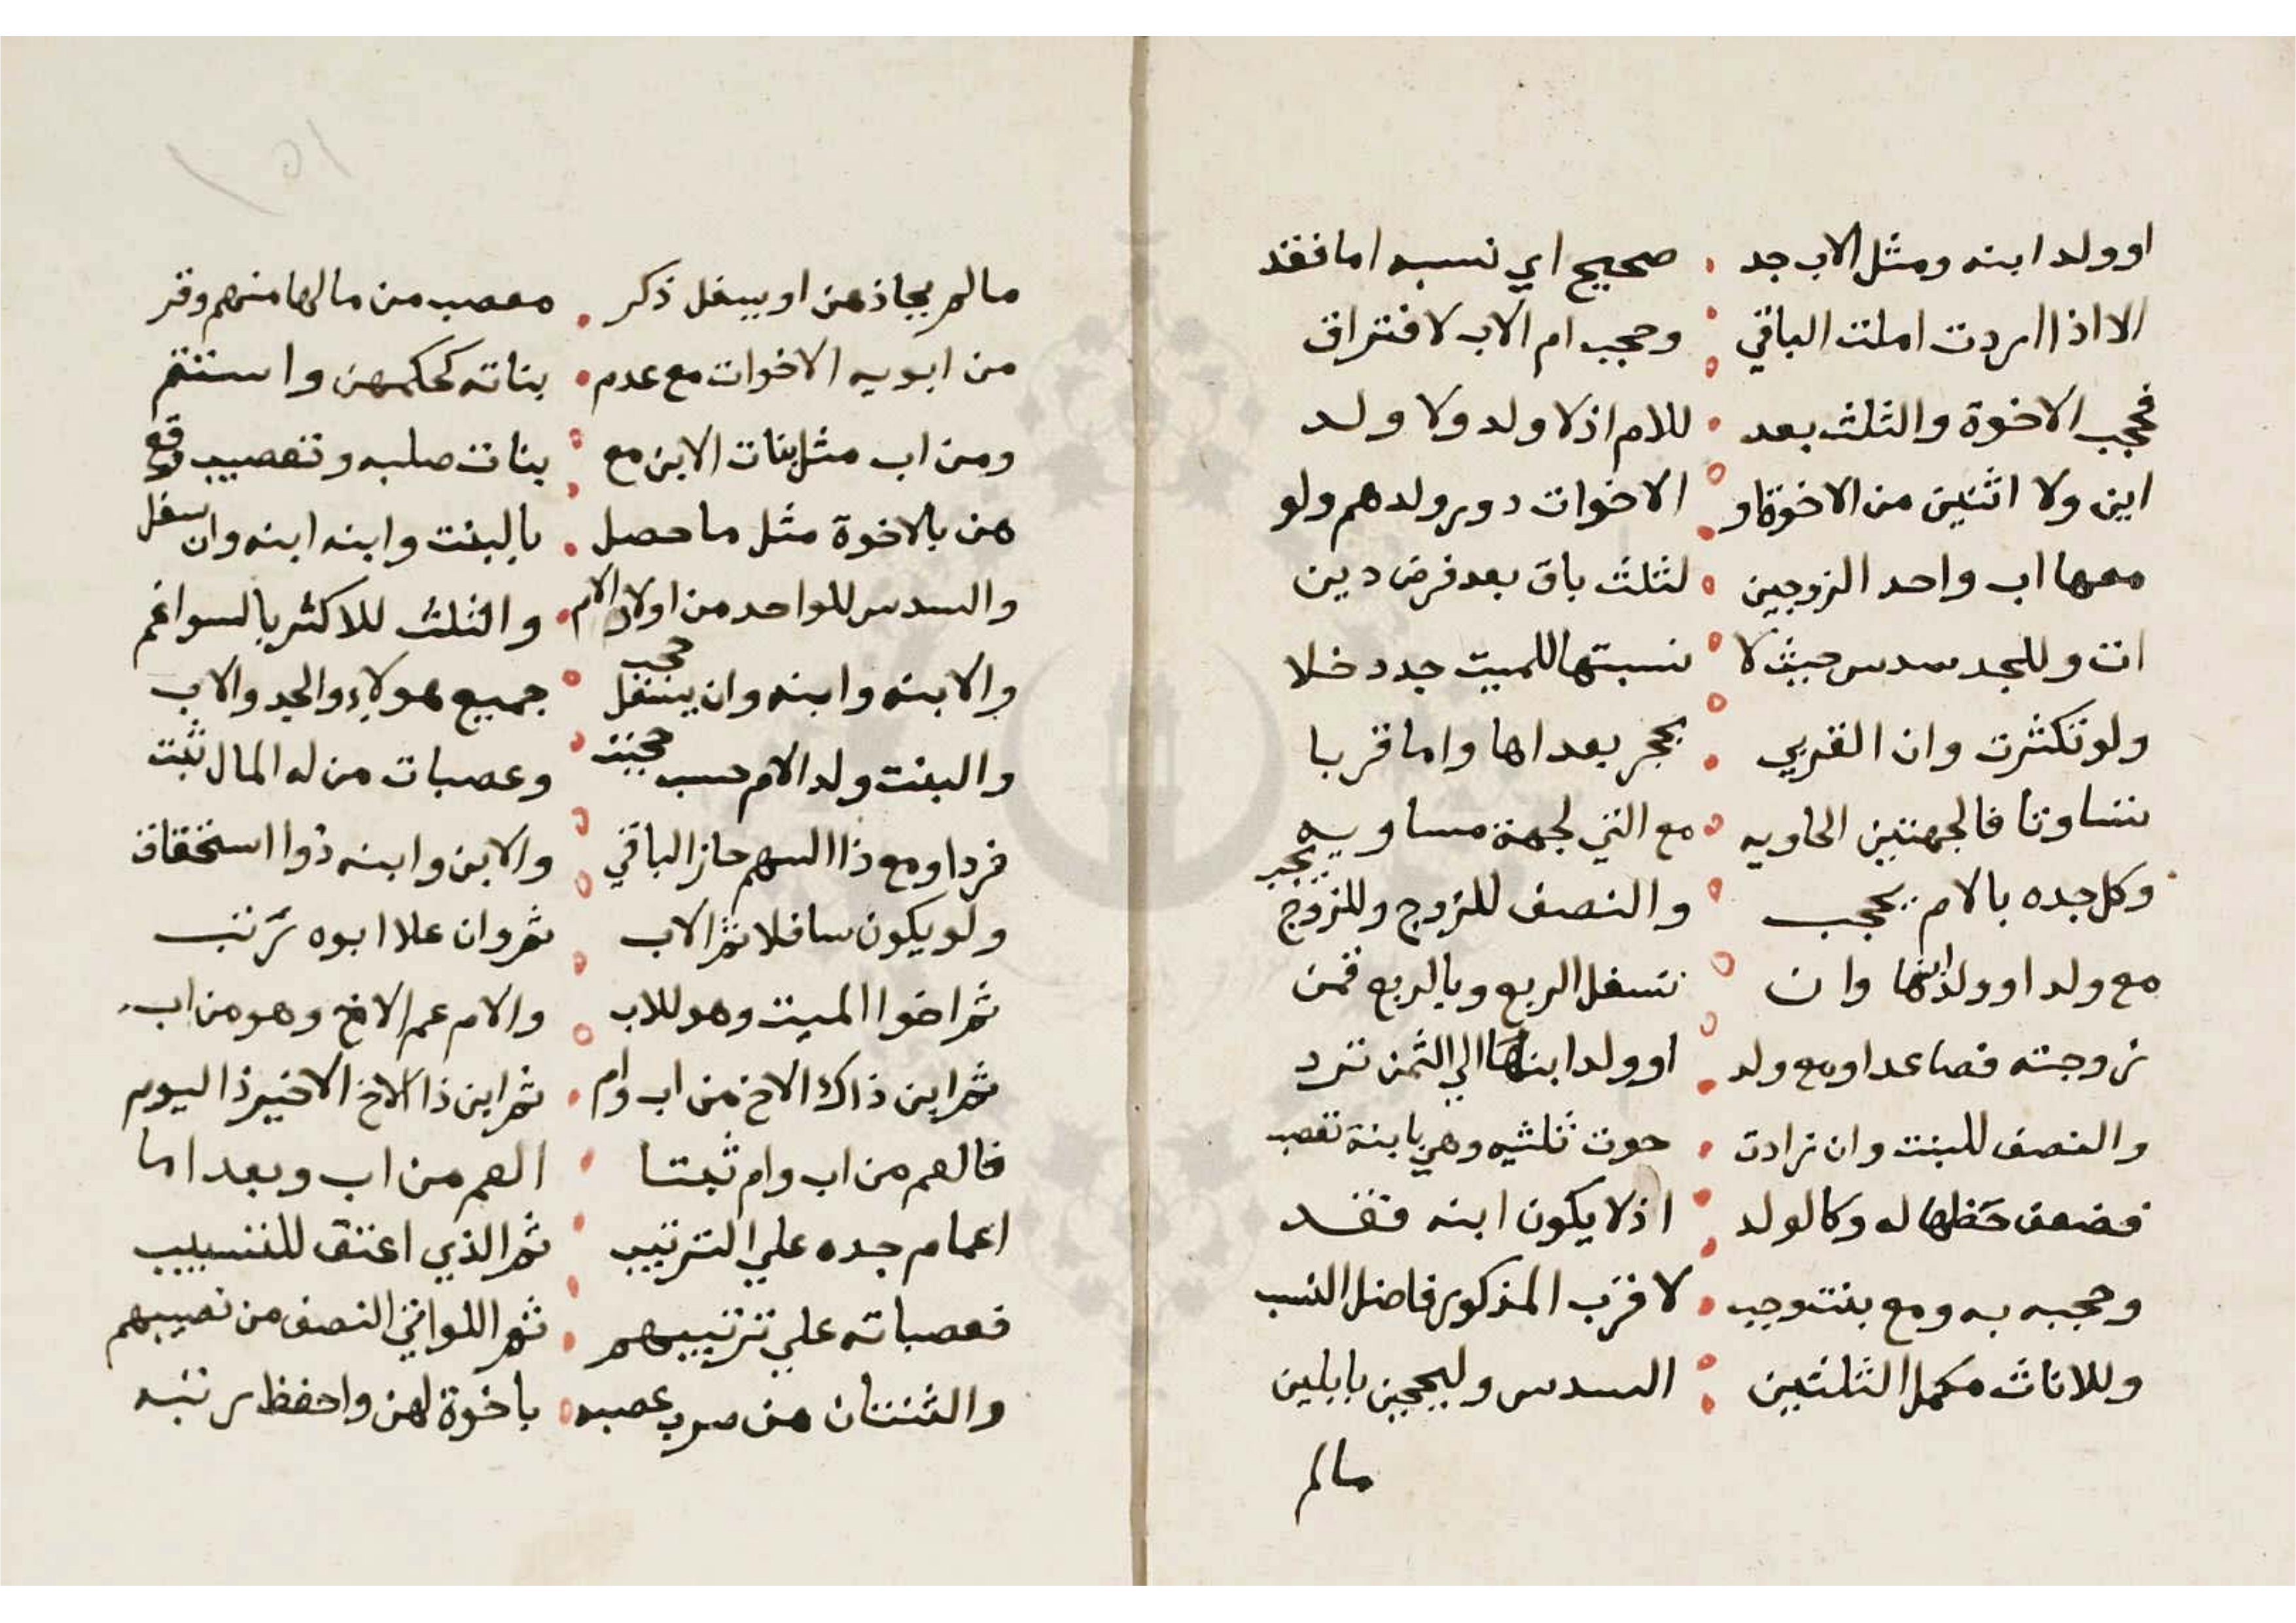 اوولد ابنه ومثل الاب جد صحيح اي نسبه اما فقد
الا اذا اردت املت الباقي وحجب ام الاب لافتراق
فحجب الاخوة والثلث بعد للام اذ لا ولد ولا ولد
ابن ولا اثنين من الاخوة او الاخوات دور ولدهم ولو
معها اب واحد الزوجين لثلث باق بعد فرض دين
ات وللجد سدس حيث لا نسبتها للميت جدد خلا
ولو تكثرت وان القربي بحجر بعداها واما قربا
تساوتا فالجهتين الحاويه مع التي لجهة مساويه
وكل جده بالام يحجب والنصف للزوج وللزوج يحجب
مع ولد اوولد ابنها وان تسفل الربع وبالربع قمن
زوجته فصاعدا ومع ولد اوولد ابنها الي الثمن ترد
والنصف للبنت وان زادت حوت ثلثيه وهي بابنة تعصب
فضعف حظها له وكالولد اذ لا يكون ابنه فقد
وحجبه به ومع بنت وجب لاقرب المذكور فاضل النسب
وللاناث مكمل الثلثين السدس وليحجبن بابلين
مالم
مالم يحاذهن اويسفل ذكر معصب من مالها منهم وقر
من ابويه الاخوات مع عدم بناته كحكمهن واستتم
ومن اب مثل بنات الابن مع بنات صلبه وتعصيب وقع
هن بالاخوة مثل ما حصل بالبنت وابنه ابنه وان سفل
والسدس للواحد من اولاد الام والثلث للاكثر بالسوا عم
والابنه وابنه وان يسفل حجب جميع هولاء والجد والاب
والبنت ولد الام حسب حجبت وعصبات من له المال ثبت
فردا ومع ذا السهم حاز الباقي والابن وابنه ذوا استحقاق
ولو يكون سافلا ثم الاب ثم وان علا ابوه ترتب
ثم اخوا الميت وهو للاب والام عم الاخ وهو من اب
ثم ابن ذاك الاخ من اب وام ثم ابن ذا الاخ الاخير ذا اليوم
فالعم من اب وام ثبتا العم من اب وبعد اما
اعمام جده علي الترتيب ثم الذي اعتق للنسيب
فعصباته علي ترتيبهم ثم اللواتي النصف من نصيبهم
والثنتان هن صرب عصبه باخوة لهن واحفظ رتبه